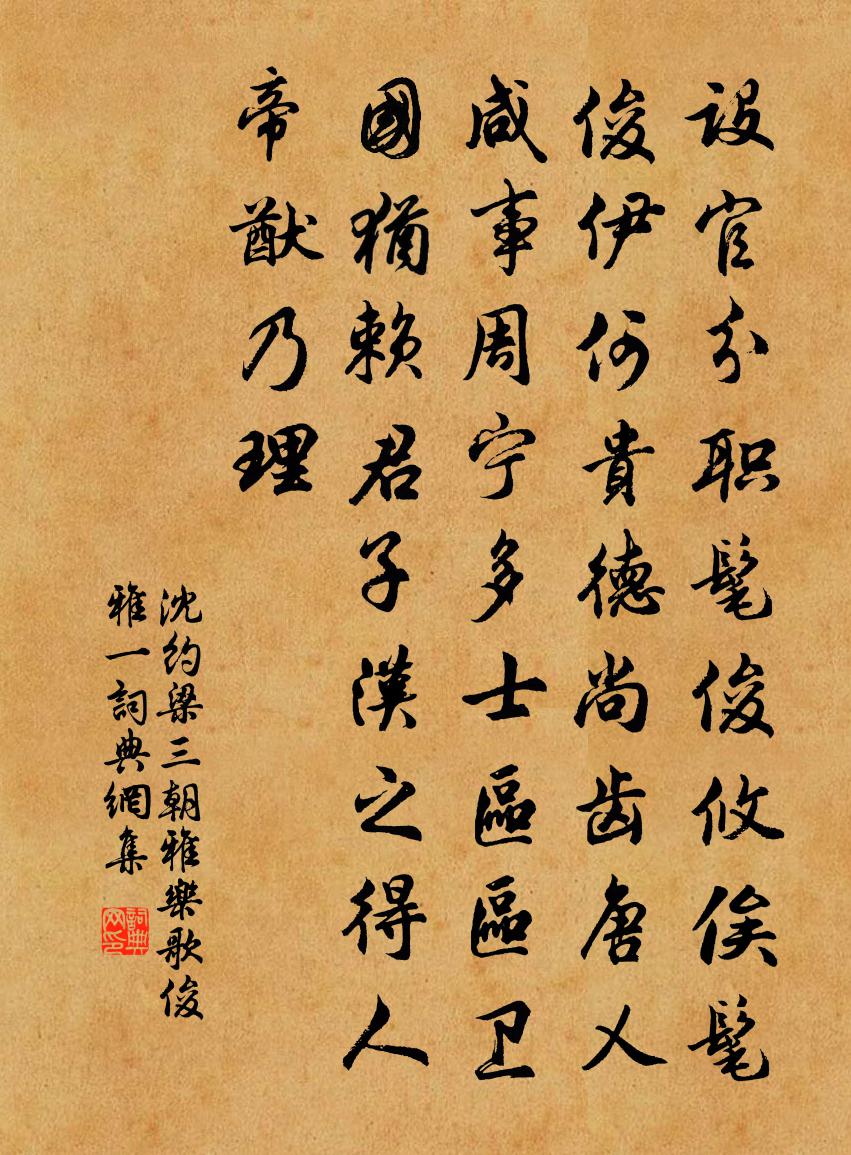 設官分职髦俊攸俟髦
俊伊何貴德尚齿唐乂
咸事周宁多士區區卫
國猶賴君子漢之得人
帝猷乃理
沈約梁三朝雅樂歌俊
雅一詞典網集
詞典网印